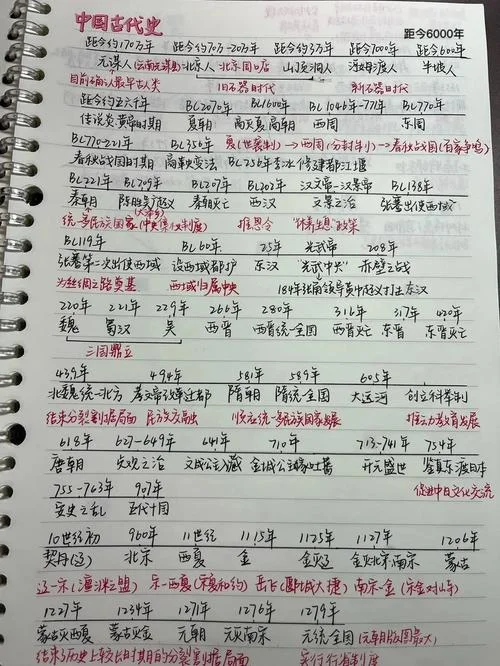 中国古代史 距今6000年
距今约170万年 距今约70万-20万年 距今约3万年 距今7000年 距今600年
元谋人(云南元谋县) 北京人 北京周口店 山顶洞人 河姆渡人 半坡人
目前确认最早古人类 旧石器时代 新石器时代
距今约五六千年 BL2070年 BL1600年 BL1046年-771年 BL770年
传说炎黄帝时期 夏朝 商灭夏商朝 西周 东周
BL770-221年 BL356年 夏(世袭制)→西周(分封制)→春秋战国(百家争鸣)
春秋战国时期 商鞅变法 BL256年李冰修建都江堰
BL221年 BL209年 BL207年 BL202年 汉文帝-汉景帝 BL138年
秦朝 陈胜吴广起义 秦朝灭亡 西汉 文景之治 张骞出使西域
(大泽乡)
统一多民族国家(中央集权制度) 推恩令 "休养生息"政策
BL119年 BL60年 25年 光武帝 208年
张骞第二次出使西域 设西域都护 东汉 "光武中兴" 赤壁之战
为丝绸之路奠基 西域归属中央 184年张角领导黄巾起义打击东汉
220年 221年 229年 266年 280年 316年 317年 420年
魏 蜀汉 吴 西晋 西晋统一全国 西晋灭亡 东晋 东晋灭亡
三国鼎立
439年 494年 581年 589年 605年
北魏统一北方 孝文帝改革迁都 隋朝 隋统一全国 大运河 创立科举制
结束分裂割据局面 民族交融 顺应统一多民族国家发展 推动教育发展
618年 627-649年 641年 710年 713-741年 754年
唐朝 贞观之治 文成公主入藏 金城公主嫁吐蕃 开元盛世 鉴真东渡日本
755-763年 907年 促进中日文化交流
安史之乱 五代十国
10世纪初 960年 11世纪 1115年 1125年 1127年 1206年
契丹(辽) 北宋 西夏 金 金灭辽 金灭北宋南宋 蒙古
辽-宋(澶渊之盟) 宋-西夏(宋夏和约) 岳飞(郾城大捷) 南宋-金(宋金对峙)
1227年 1234年 1271年 1276年 1279年
蒙古灭西夏 蒙古灭金 元朝 元灭南宋 元统一全国(元朝版图最大)
结束了历史上较长时期的分裂割据局面 实行行省制度